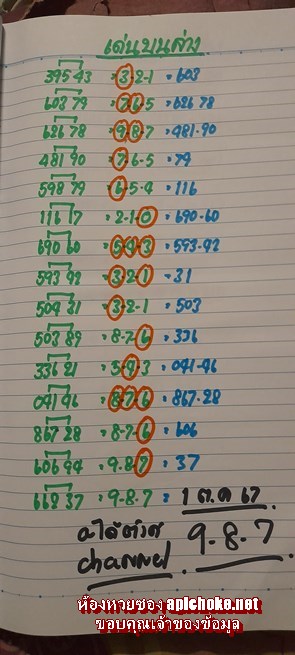 เด่นบนล่าง
395 43 = 3-2-1 = 603
603 79 = 7-6-5 = 626 78
626 78 = 9-8-7 = 481-90
481 90 = 7-6-5 = 79
598 79 = 6-5-4 = 116
116 17 = 2-1-0 = 690-60
690 60 = 5-4-3 = 593-92
593 92 = 3-2-1 = 31
504 31 = 3-2-1 = 503
503 89 = 8-7-6 = 336
336 21 = 5-4-3 = 041-46
041 46 = 8-7-6 = 867-28
867 28 = 8-7-6 = 606
606 94 = 9-8-7 = 37
668 37 = 9-8-7 = 1 ต.ค 67
9-8-7
channel
ห้องหวยซอง apichoke.net
ขอบคุณเจ้าของข้อมูล